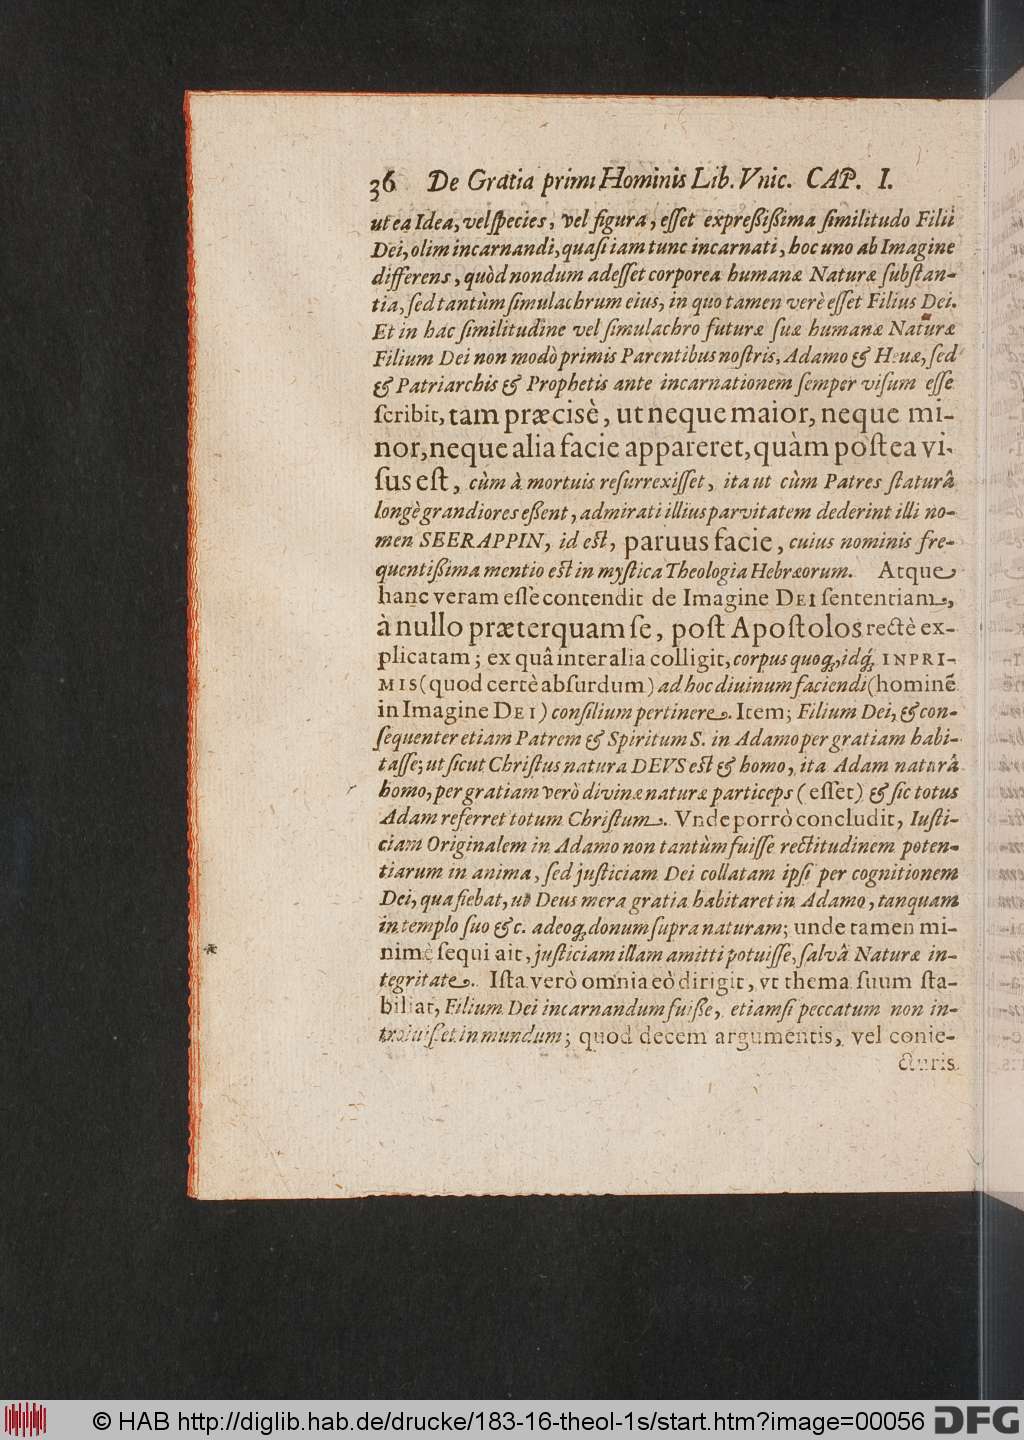 36 De Gratia primi Hominis Lib. Vnic. CAP. I.
ut ea Idea, vel species, vel figura, eſſet expreßißima ſimilitudo Filii
Dei, olim incarnandi, quaſi iam tunc incarnati, hoc uno ab Imagine
differens, quòd nondum adeſſet corporea humanæ Naturæ ſubſtan-
tia, ſed tantùm ſimulachrum eius, in quo tamen verè eſſet Filius Dei.
Et in hac ſimilitudine vel ſimulachro futuræ ſuæ humanæ Naturæ
Filium Dei non modò primis Parentibus noſtris, Adamo & Heuæ, ſed
& Patriarchis & Prophetis ante incarnationem ſemper viſum eſſe
ſcribit, tam præcisè, ut neque maior, neque mi-
nor, neque alia facie appareret, quàm poſtea vi-
ſus eſt, cùm à mortuis reſurrexiſſet, ita ut cùm Patres ſtaturâ
longè grandiores eßent, admirati illius parvitatem dederint illi no-
men SEERAPPIN, id eſt, paruus facie, cuius nominis fre-
quentißima mentio eſt in myſtica Theologia Hebræorum. Atque
hanc veram eſſe contendit de Imagine DEI ſententiam,
à nullo præterquam ſe, poſt Apoſtolos rectè ex-
plicatam; ex quâ inter alia colligit, corpus quoq;, idq́; INPRI-
MIS (quod certè abſurdum) ad hoc diuinum faciendi (hominē
in Imagine DEI) conſilium pertinere. Item; Filium Dei, & con-
ſequenter etiam Patrem & Spiritum S. in Adamo per gratiam habi-
taſſe; ut ſicut Chriſtus natura DEVS eſt & homo, ita Adam naturâ
homo, per gratiam verò divinæ naturæ particeps (eſſet) & ſic totus
Adam referret totum Chriſtum. Vnde porrò concludit, Iuſti-
ciam Originalem in Adamo non tantùm fuiſſe rectitudinem poten-
tiarum in anima, ſed juſticiam Dei collatam ipſi per cognitionem
Dei, qua fiebat, ut Deus mera gratia habitaret in Adamo, tanquam
in templo ſuo &c. adeoq; donum ſupra naturam; unde tamen mi-
nimè ſequi ait, juſticiam illam amitti potuiſſe, ſalvâ Naturæ in-
tegritate. Iſta verò omnia eò dirigit, vt thema ſuum ſta-
biliat, Filium Dei incarnandum fuiße, etiamſi peccatum non in-
troiuiſſet in mundum; quod decem argumentis, vel conie-
cturis
© HAB http://diglib.hab.de/drucke/183-16-theol-1s/start.htm?image=00056 DFG